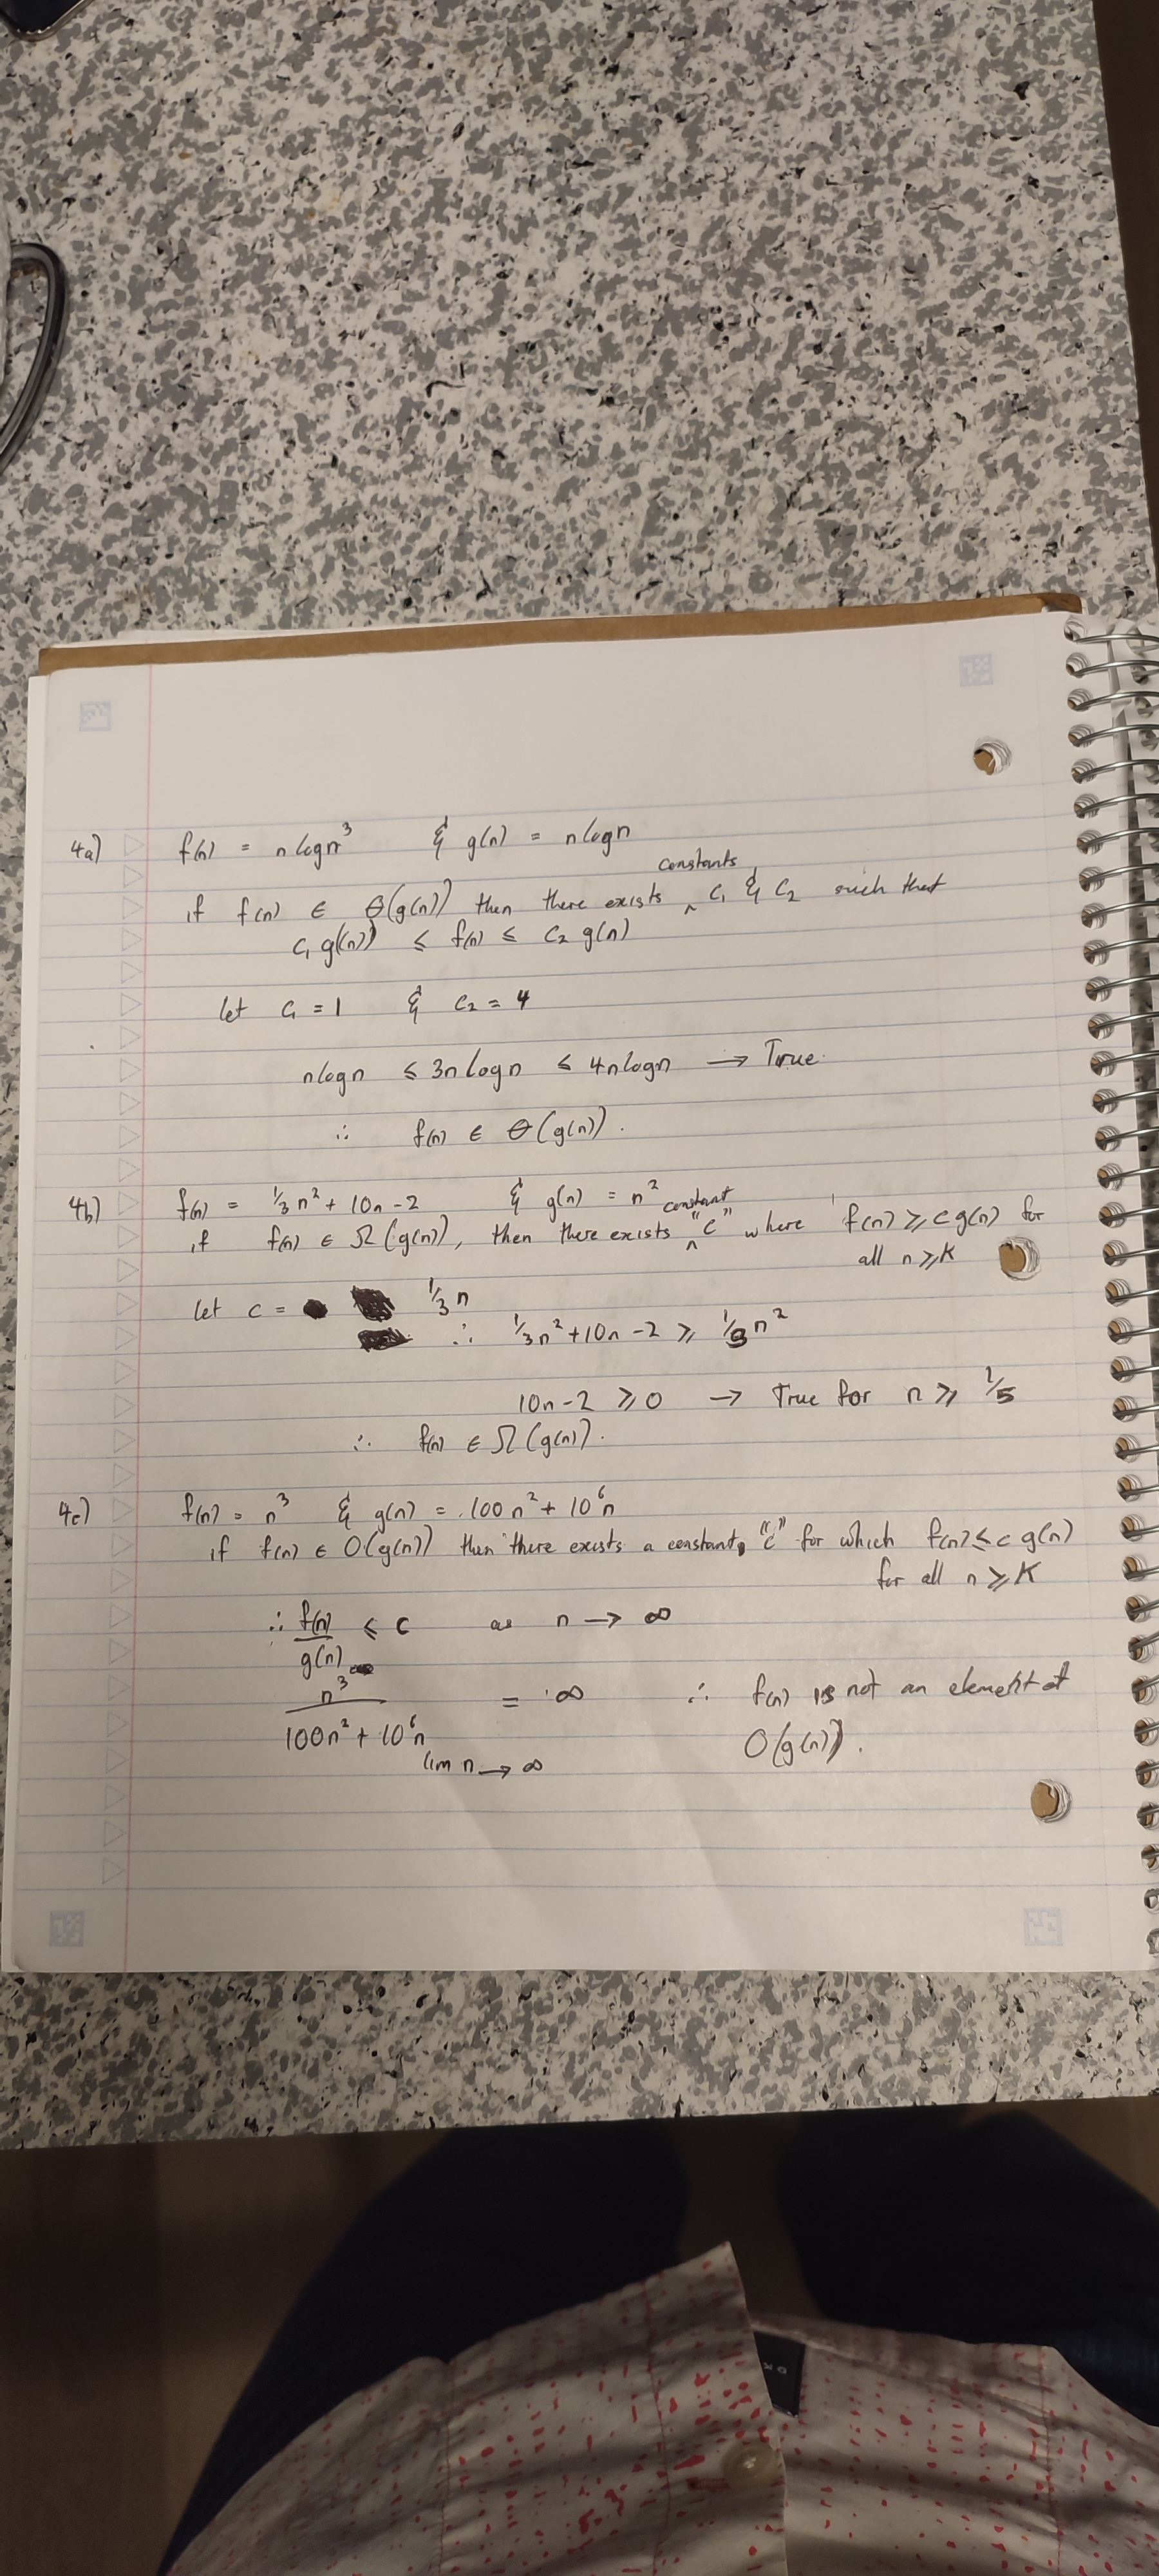 4a) f(n) = nlogn³ & g(n) = nlogn
constants
if f(n) ∈ Θ(g(n)) then there exists ^ C₁ & C₂ such that
C₁ g(n) ≤ f(n) ≤ C₂ g(n)
let C₁ = 1 & C₂ = 4
nlogn ≤ 3nlogn ≤ 4nlogn → True.
∴ f(n) ∈ Θ(g(n)).
4b) f(n) = 1/3n² + 10n - 2 & g(n) = n²
constant
if f(n) ∈ Ω(g(n)), then there exists ^ "c" where f(n) ≥ c g(n) for
all n ≥ K
let c = 1/3n
∴ 1/3n² + 10n - 2 ≥ 1/3n²
10n - 2 ≥ 0 → True for n ≥ 1/5
∴ f(n) ∈ Ω(g(n)).
4c) f(n) = n³ & g(n) = 100n² + 10⁶n
if f(n) ∈ O(g(n)) then there exists a constant, "c" for which f(n) ≤ c g(n)
for all n ≥ K
∴ f(n)/g(n) ≤ c as n → ∞
n³/(100n² + 10⁶n) lim n → ∞ = ∞ ∴ f(n) is not an element of
O(g(n)).